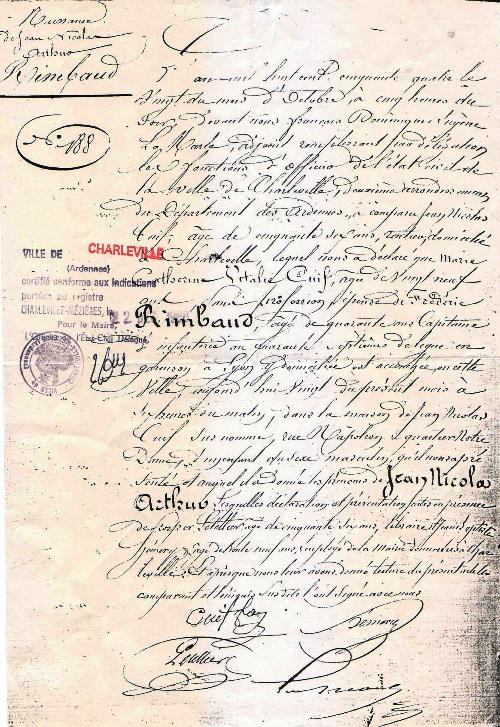 Naissance
de Jean Nicolas
Arthur
Rimbaud
N° 188
L'an mil huit cent cinquante quatre le
Vingt du mois d'Octobre, à cinq heures du
Soir, Devant nous François Dominique Eugène
Le Marle, adjoint remplissant par délégation
les fonctions d'officier de l'état civil de
la Ville de Charleville, deuxième arrondissement
du Département des Ardennes, a comparu Jean Nicolas
Cuif, âgé de cinquante six ans, rentier, domicilié
à Charleville, lequel nous a déclaré que Marie
Catherine Vitalie Cuif, âgée de vingt neuf
ans, profession, épouse de Frédéric
Rimbaud, âgé de quarante ans Capitaine
d'infanterie au quarante septième de ligne en
garnison à Lyon domicilié est accouchée en cette
Ville, aujourd'hui vingt du présent mois à
six heures du matin, dans la maison de Jean Nicolas
Cuif susnommé, rue Napoléon quartier Notre
Dame, d'un enfant du sexe masculin, qu'il nous a pré
senté et auquel il a donné les prénoms de Jean Nicolas
Arthur Lesquelles déclaration et présentation faites en présence
de Prosper Letellier âgé de cinquante six ans, libraire et
âgé de trente neuf ans, employé de la Mairie domiciliés à Char
leville. Et après que nous leur avons donné lecture du présent acte le
comparant et témoins susdits l'ont signé avec nous
Cuif
VILLE DE CHARLEVILLE
(Ardennes)
certifié conforme aux indications
portées au registre
CHARLEVILLE-MÉZIÈRES, le
Pour le Maire,
L'Officier de l'État Civil Délégué,